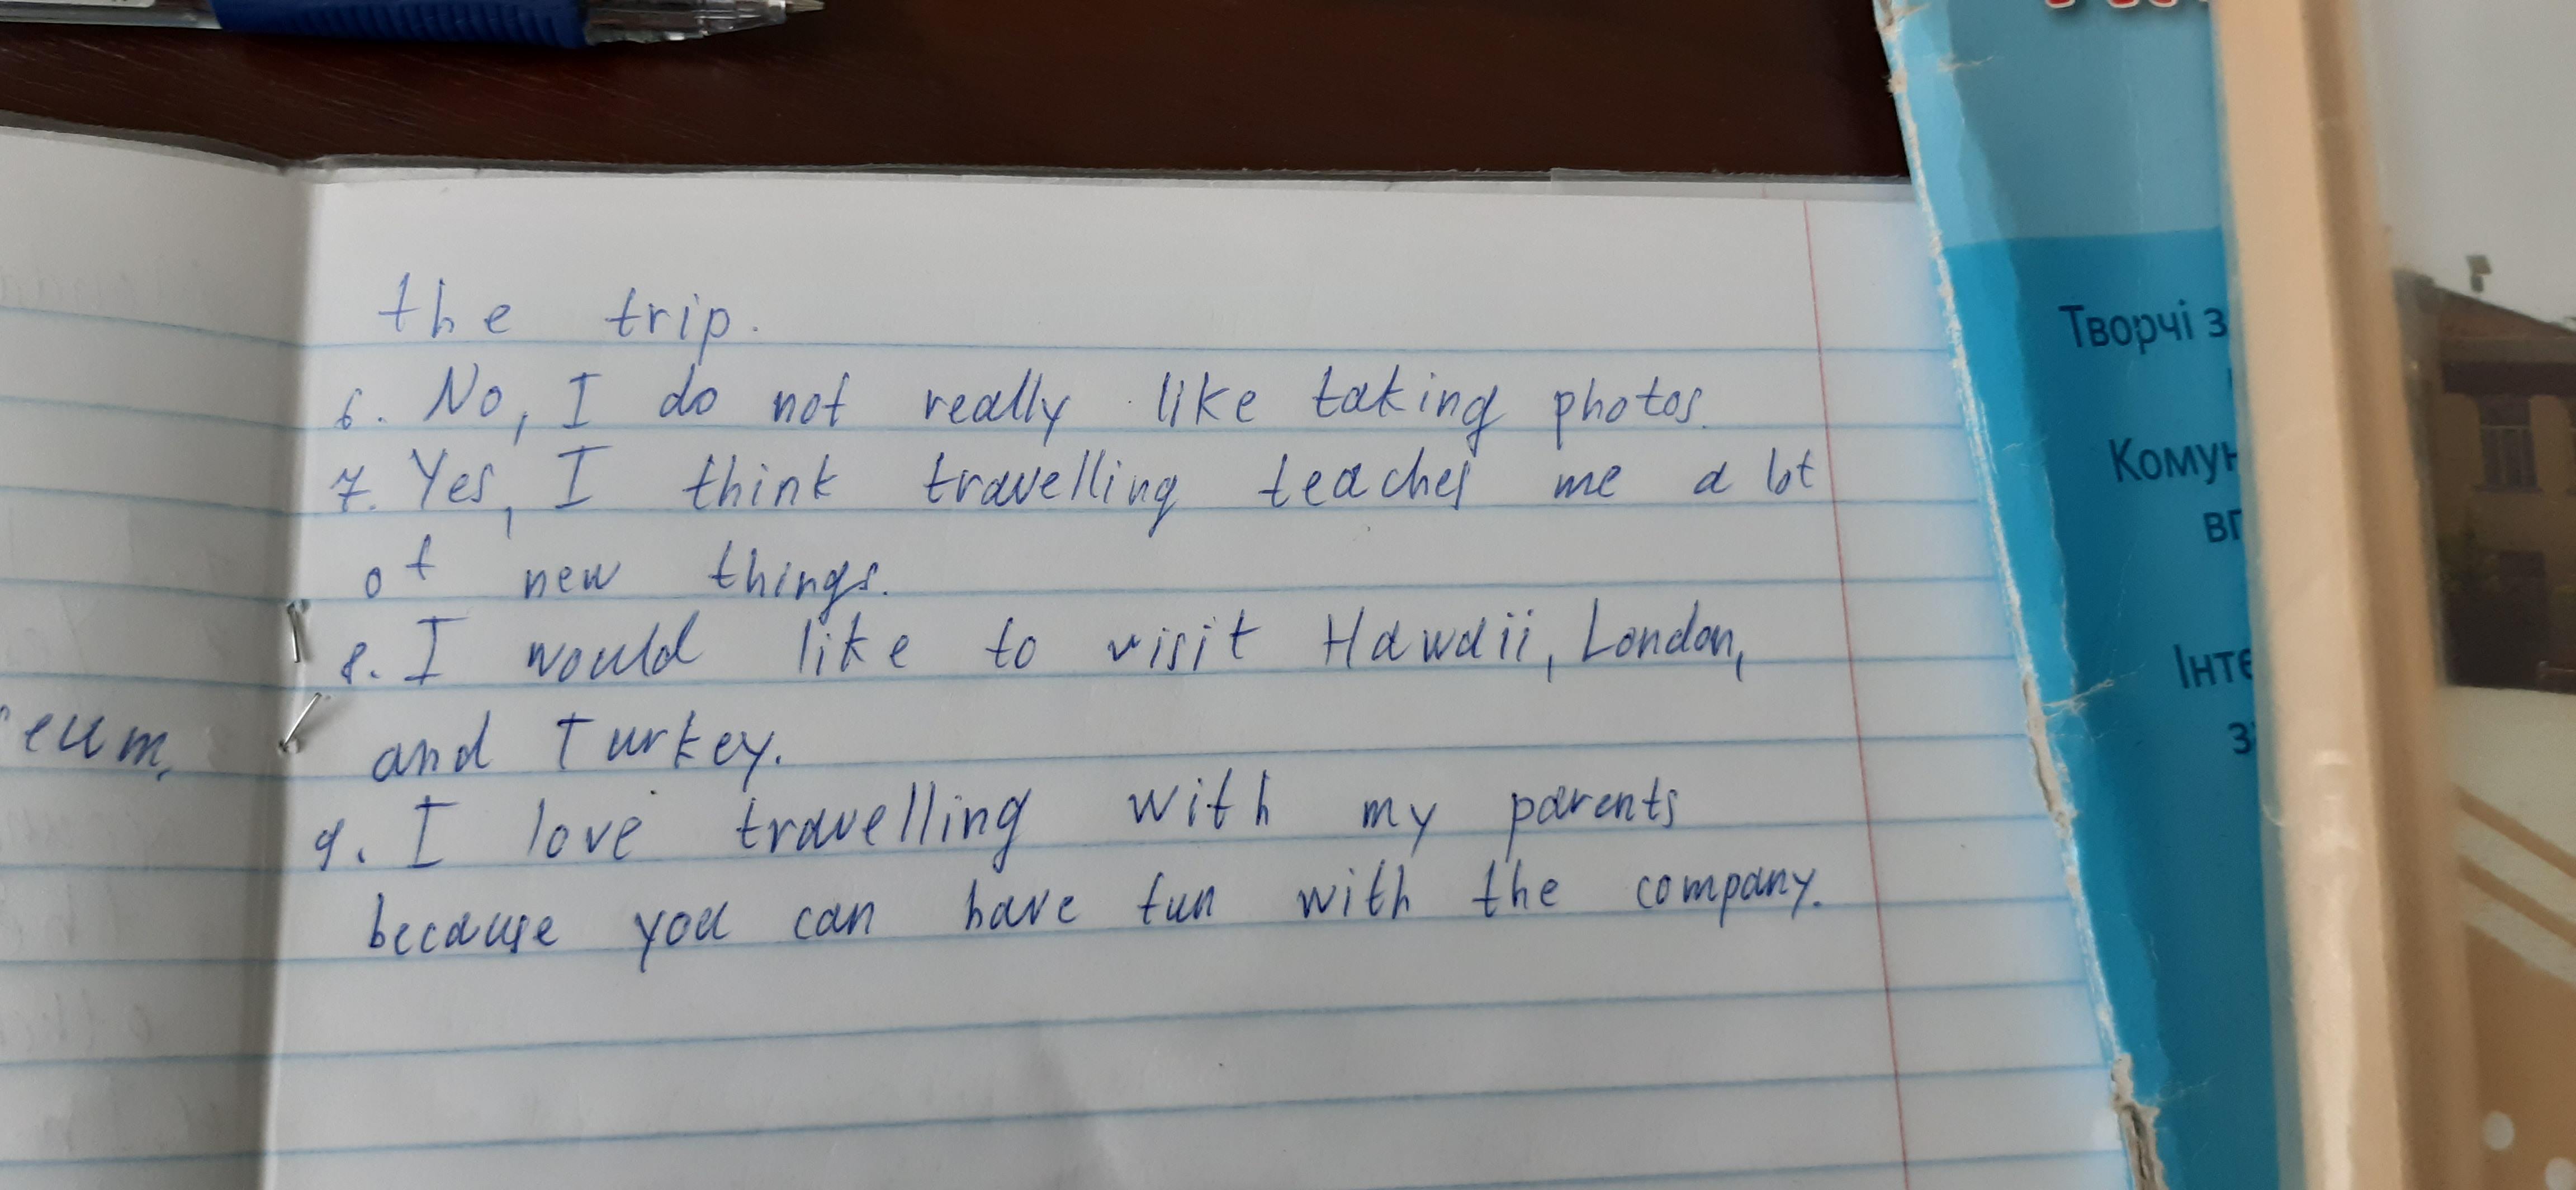 the trip.
6. No, I do not really like taking photos.
7. Yes, I think travelling teaches me a lot
of new things.
8. I would like to visit Hawaii, London,
and Turkey.
9. I love travelling with my parents
because you can have fun with the company.
eum.
Творчі з
Комун
вп
Інте
з